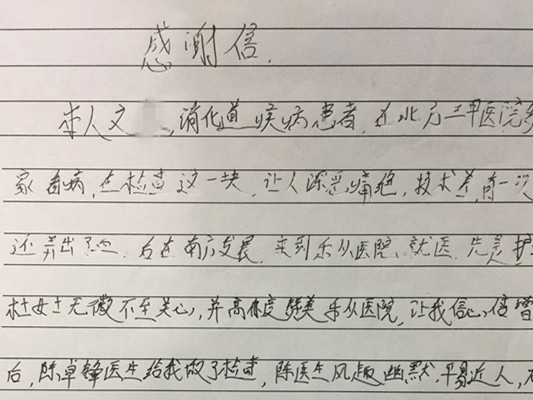 感谢信.
本人文 ,消化道疾病患者,在北方三甲医院多
家看病,在检查这一块,让人深恶痛绝,技术差,有一次
还弄出了血.后在南方发展,来到乐从医院、就医,先是护
杜女士无微不至关心,并高度赞美乐从医院,让我信心倍增
后,陈卓锋医生给我做了检查,陈医生风趣幽默,平易近人,